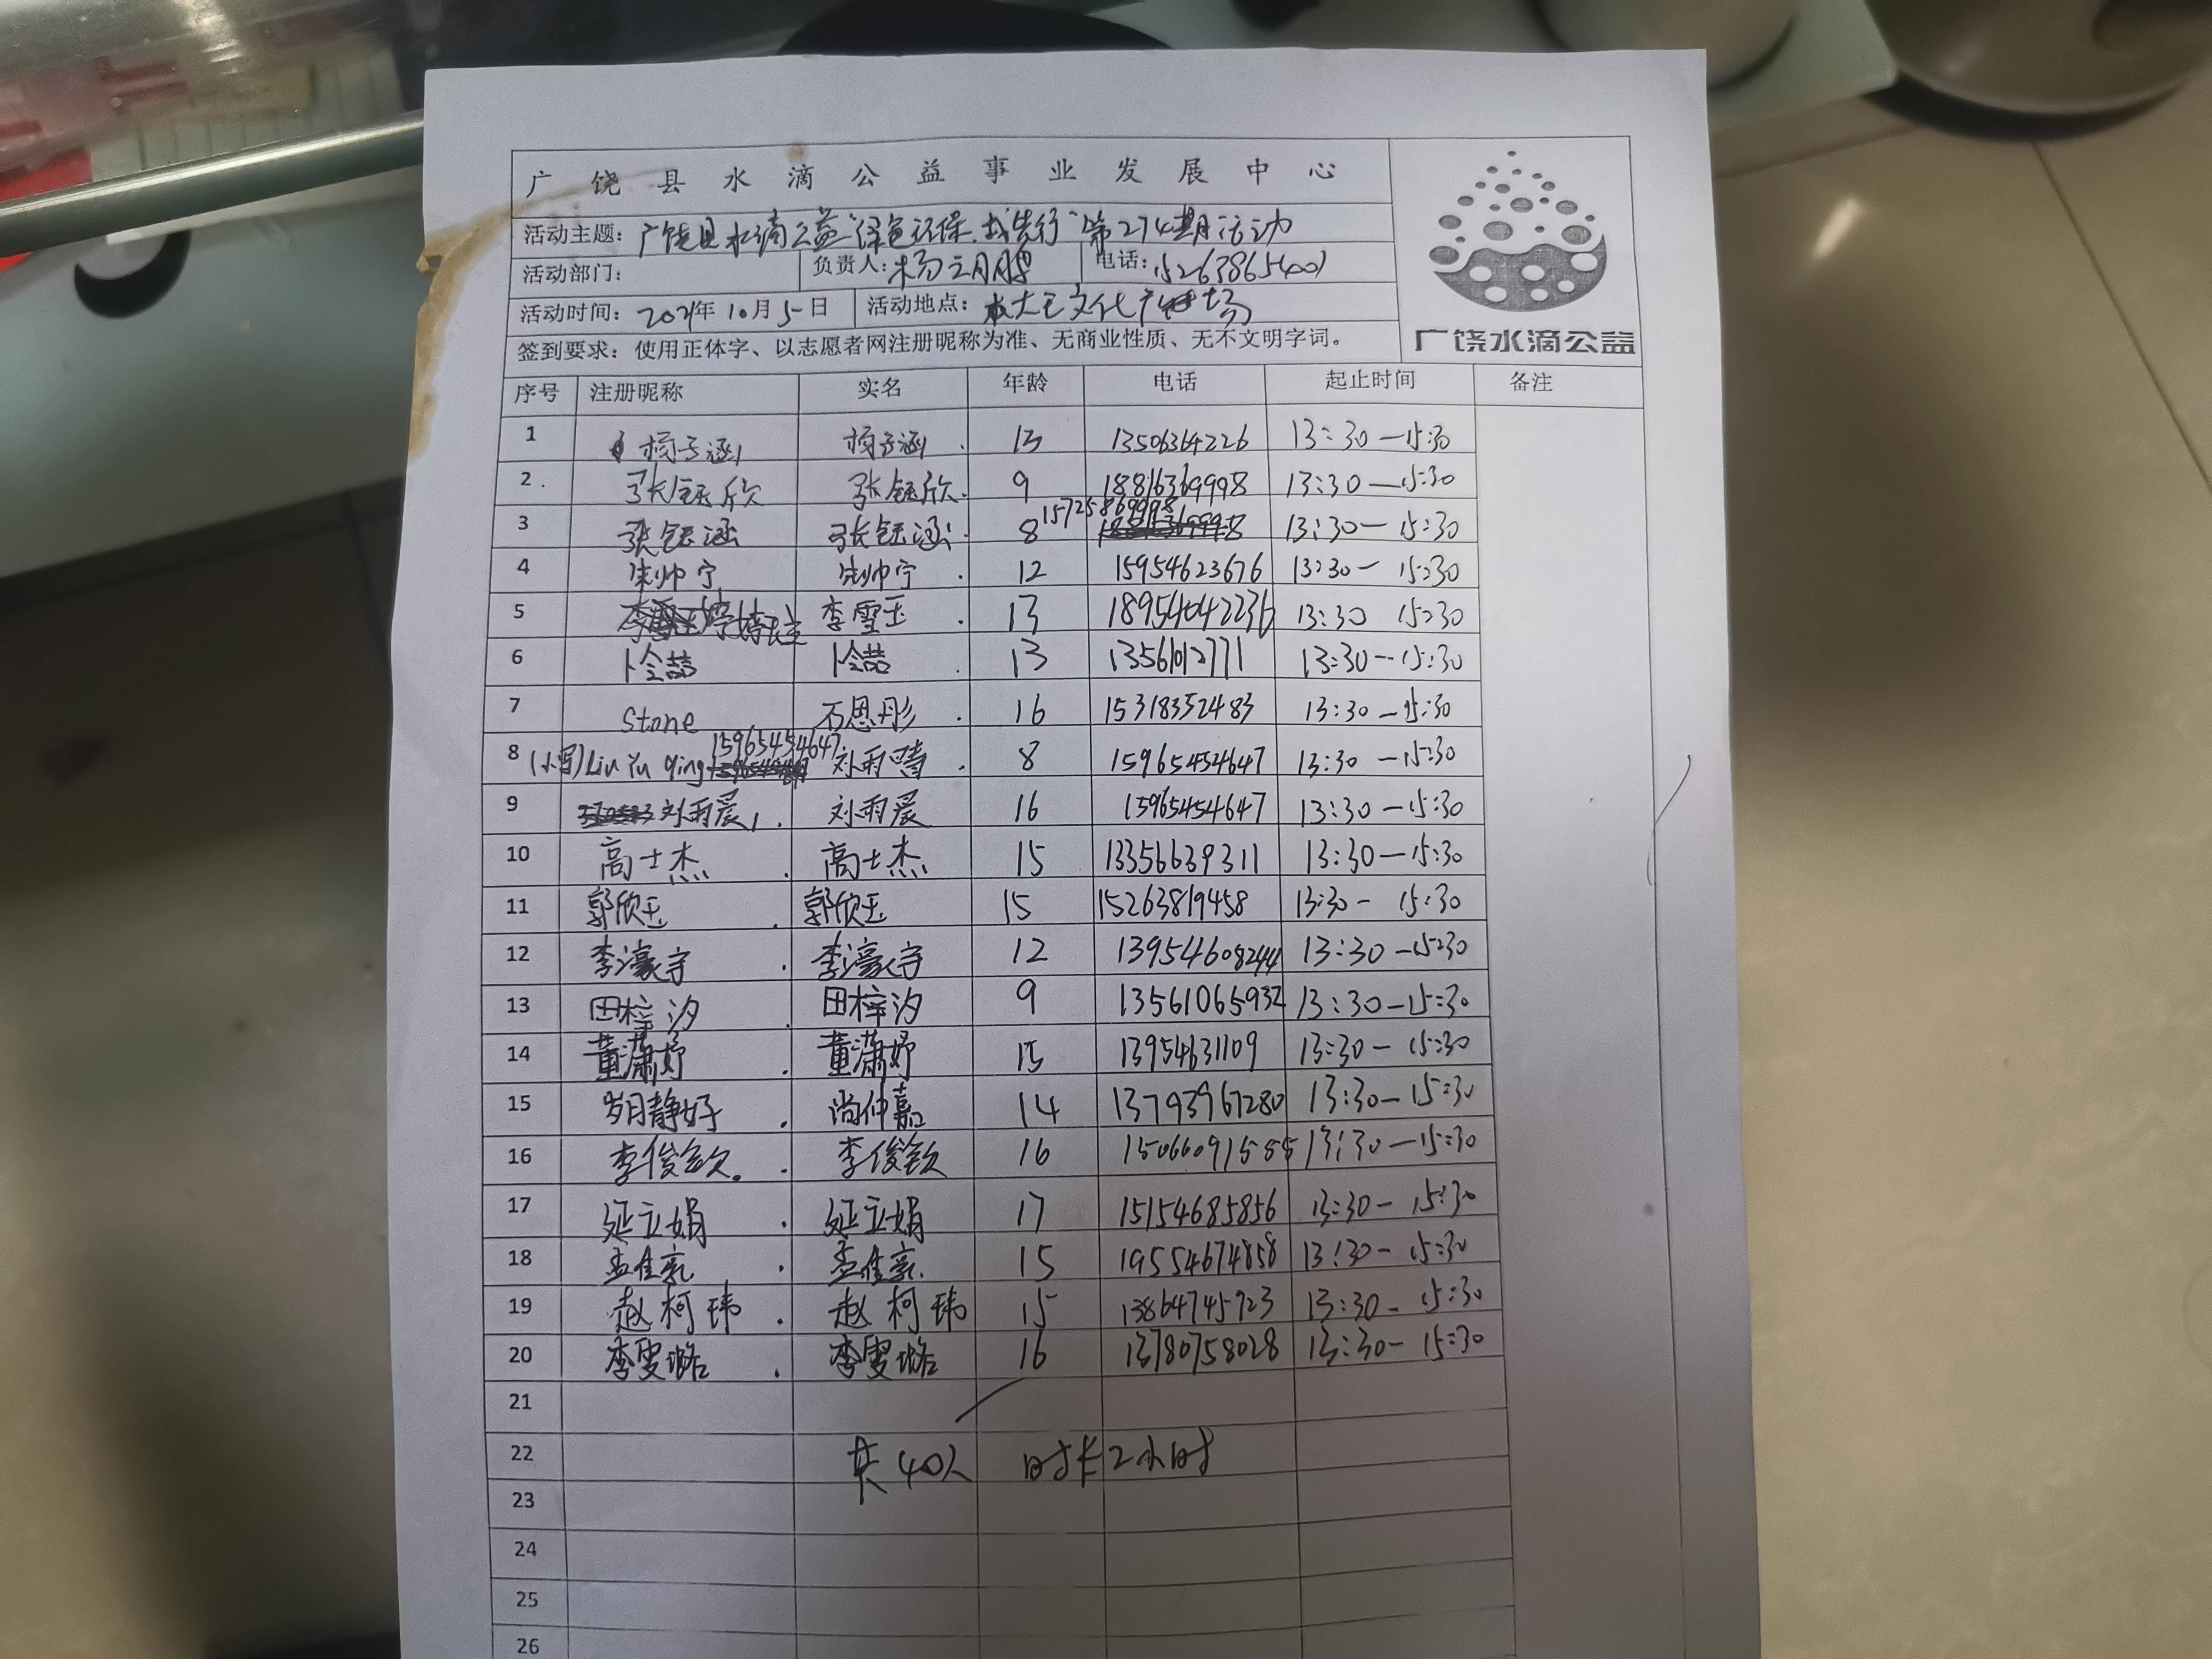 广饶县水滴公益事业发展中心
活动主题：广饶县水滴公益“绿色环保，我先行”第274期活动
活动部门： 负责人： 电话：15263865401
活动时间：2021年10月5日 活动地点：大王文化广场
签到要求：使用正体字、以志愿者网注册昵称为准、无商业性质、无不文明字词。
广饶水滴公益
序号 注册昵称 实名 年龄 电话 起止时间 备注
1 杨子涵 杨子涵 13 13506364226 13:30—15:30
2 张钰欣 张钰欣 9 18816369998 13:30—15:30
3 张钰涵 张钰涵 8 15725869998 13:30—15:30
4 朱帅宁 朱帅宁 12 15954623676 13:30—15:30
5 李雪玉 13 18954042236 13:30 15:30
6 卜令喆 卜令喆 13 13561012771 13:30—15:30
7 Stone 石恩彤 16 15318352483 13:30—15:30
8 (小写)Liu Yu qing 15965454647 刘雨晴 8 15965454647 13:30—15:30
9 刘雨晨 刘雨晨 16 15965454647 13:30—15:30
10 高士杰 高士杰 15 13356639311 13:30—15:30
11 郭欣玉 郭欣玉 15 15263819458 13:30—15:30
12 李濠宇 李濠宇 12 13954608244 13:30—15:30
13 田梓汐 田梓汐 9 13561065932 13:30—15:30
14 董潇妤 董潇妤 15 13954631109 13:30—15:30
15 岁月静好 尚仲嘉 14 13793967280 13:30—15:30
16 李俊钦 李俊钦 16 15066091585 13:30—15:30
17 延立娟 延立娟 17 15154685856 13:30—15:30
18 孟佳 孟佳 15 19554674858 13:30—15:30
19 赵柯玮 赵柯玮 15 13864745923 13:30—15:30
20 李雯璐 李雯璐 16 13780758028 13:30—15:30
21
22 共40人 时长2小时
23
24
25
26